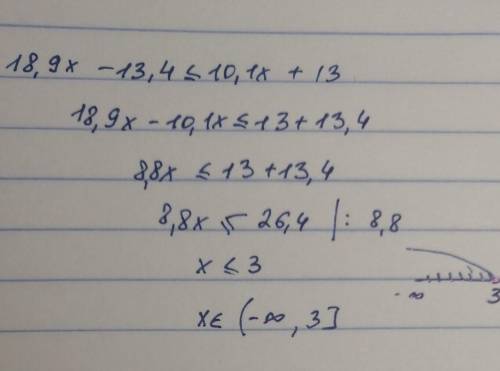 18,9x - 13,4 ≤ 10,1x + 13
18,9x - 10,1x ≤ 13 + 13,4
8,8x ≤ 13 + 13,4
8,8x ≤ 26,4 | : 8,8
x ≤ 3
-∞ 3
x∈ (-∞, 3]